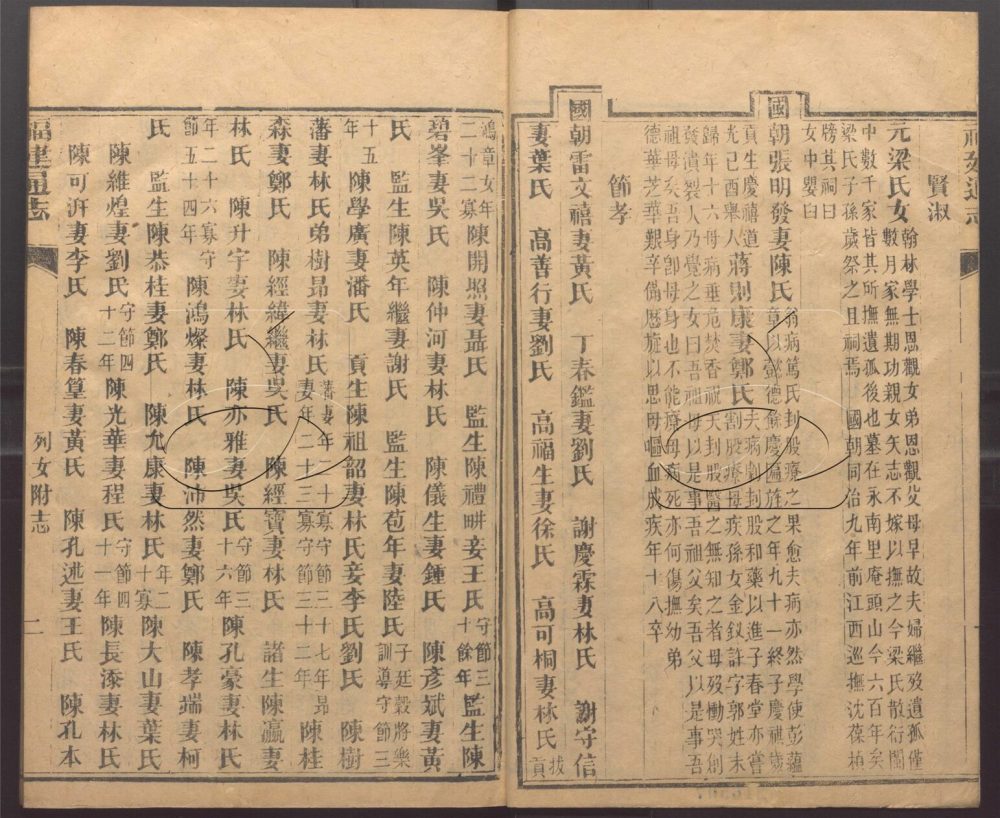 賢淑
元梁氏女翰林學士恩觀女弟恩觀父母早故夫婦繼歿遺孤僅
數月家無期功親女矢志不嫁以撫之今梁氏散衍閩
中數千家皆其所撫遺孤後也墓在永南里庵頭山今六百年矣
梁氏子孫歲祭之且祠焉 國朝同治九年前江西巡撫沈葆楨
牓其祠曰
女中嬰臼
國朝張明發妻陳氏翁病篤氏刲股療之果愈夫病亦然學使彭蘊
章以懿德餘慶匾旌之年九十一終子慶禧歲
貢生慶禧道
光己酉舉人蔣則康妻鄭氏夫病劇刲股和藥以進子春堂亦嘗
割股療母疾孫女金釵許字郭姓未
歸年十六母病垂危焚香祝天刲股醫之無知之者母歿慟哭創
發潰裂人乃覺之女曰吾祖母以是事吾祖父矣吾父以是事吾
祖母矣吾身卽母身也不能療母病死亦何傷撫幼弟
德華芝華艱辛備歷旋以思母嘔血成疾年十八卒
節孝
國朝雷文禧妻黃氏 丁春鑑妻劉氏 謝慶霖妻林氏 謝守信
妻葉氏 高善行妻劉氏 高福生妻徐氏 高可桐妻林氏拔
貢
鴻章女年
二十二寡陳開照妻聶氏 監生陳禮畊妾王氏守節三
十餘年監生陳
碧峯妻吳氏 陳仲河妻林氏 陳儀生妻鍾氏 陳彥斌妻黃
氏 監生陳英年繼妻謝氏 監生陳苞年妻陸氏子廷穀將樂
訓導守節三
十五
年 陳學廣妻潘氏 貢生陳祖韶妻林氏妾李氏劉氏 陳樹
藩妻林氏弟樹昴妻林氏藩妻年二十寡守節三十七年昴
妻年二十三寡守節三十二年 陳桂
森妻鄭氏 陳經緯繼妻吳氏 陳經寶妻林氏 諸生陳瀛妻
林氏 陳升宇妻林氏 陳亦雅妻吳氏守節三
十六年陳孔豪妻林氏
年二十六寡守
節五十四年 陳鴻燦妻林氏 陳沛然妻鄭氏 陳孝端妻柯
氏 監生陳恭桂妻鄭氏 陳允康妻林氏年二
十寡陳大山妻葉氏
陳維煌妻劉氏守節四
十二年陳光華妻程氏守節四
十一年陳長漆妻林氏
陳可汧妻李氏 陳春篁妻黃氏 陳孔逃妻王氏 陳孔本
福建通志
列女附志
二